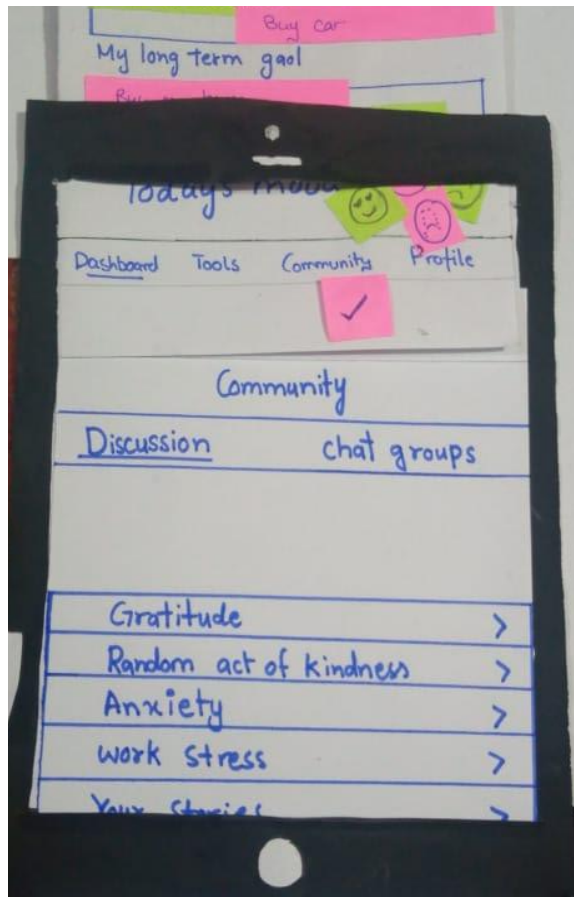 Buy car
My long term gaol
Buy
Todays mood
Dashboard Tools Community Profile
Community
Discussion chat groups
Gratitude >
Random act of kindness >
Anxiety >
work stress >
Your Stories >